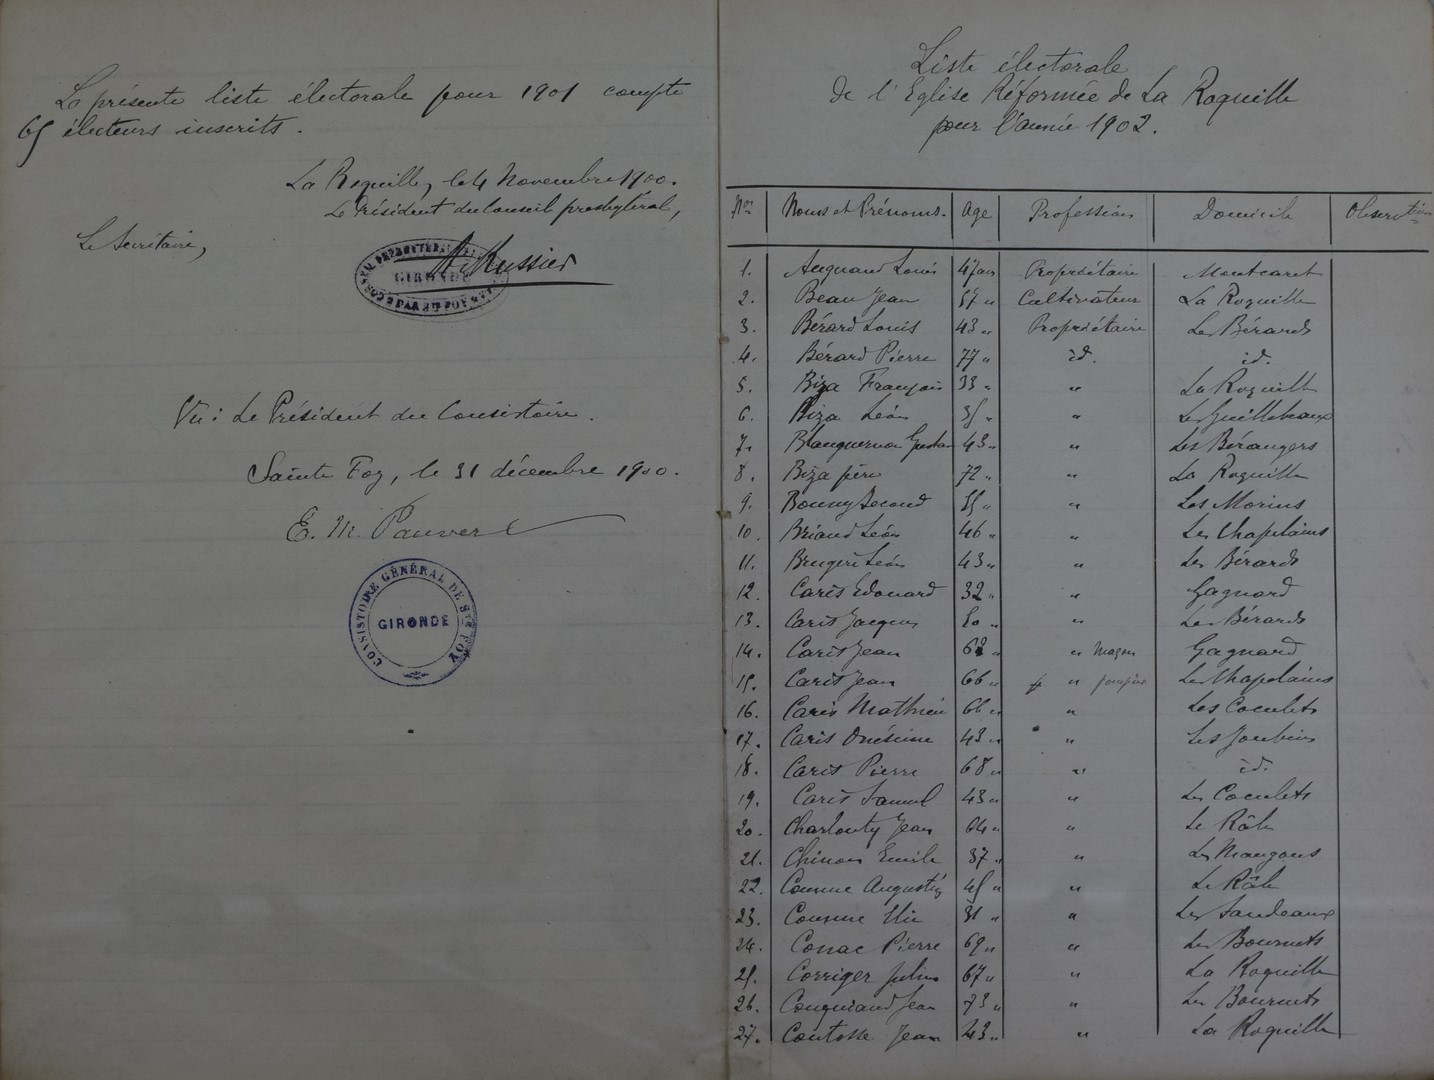 La présente liste électorale pour 1901 compte
65 électeurs inscrits.
La Roquille, le 4 Novembre 1900.
Le Président du Conseil presbytéral,
Le Secrétaire,
GIRONDE
Vu : Le Président du Consistoire.
Sainte Foy, le 31 décembre 1900.
E. M. Pauvert
CONSISTOIRE GÉNÉRAL DE STE FOY
GIRONDE
Liste électorale
de l'Eglise Réformée de La Roquille
pour l'année 1902.
Nos Noms et Prénoms. Age Profession Domicile Observations
1. Louis 47 ans Propriétaire Montcaret
2. Beau Jean 57 " Cultivateur La Roquille
3. Bérard Louis 43 " Propriétaire Les Bérards
4. Bérard Pierre 77 " id. id.
5. Biza François 33 " " La Roquille
6. Biza Léon 35 " " Les Guillebeaux
7. Blanquernon 43 " " Les Bérangers
8. Biza père 72 " " La Roquille
9. Bonny Second 55 " " Les Morins
10. Briand Léon 46 " " Les Chapelains
11. Brugère Léon 43 " " Les Bérards
12. Caris Edouard 32 " " Gagnard
13. Caris Jacques " " Les Bérards
14. Caris Jean 68 " " Maçon Gagnard
15. Caris Jean 66 " " Les Chapelains
16. Caris Mathieu 66 " " Les Coculets
17. Caris Onésime 43 " " Les Joubins
18. Caris Pierre 68 " " id.
19. Caris Samuel 43 " " Les Coculets
20. Charlouty Jean 64 " " Le Râle
21. Emile 37 " " Les Mangons
22. Augustin 45 " " Le Râle
23. 31 " " Les Jandeaux
24. Conac Pierre 69 " " Les Bournets
25. Corriger Julien 67 " " La Roquille
26. Jean 73 " " Les Bournets
27. Coutosse Jean 43 " " La Roquille